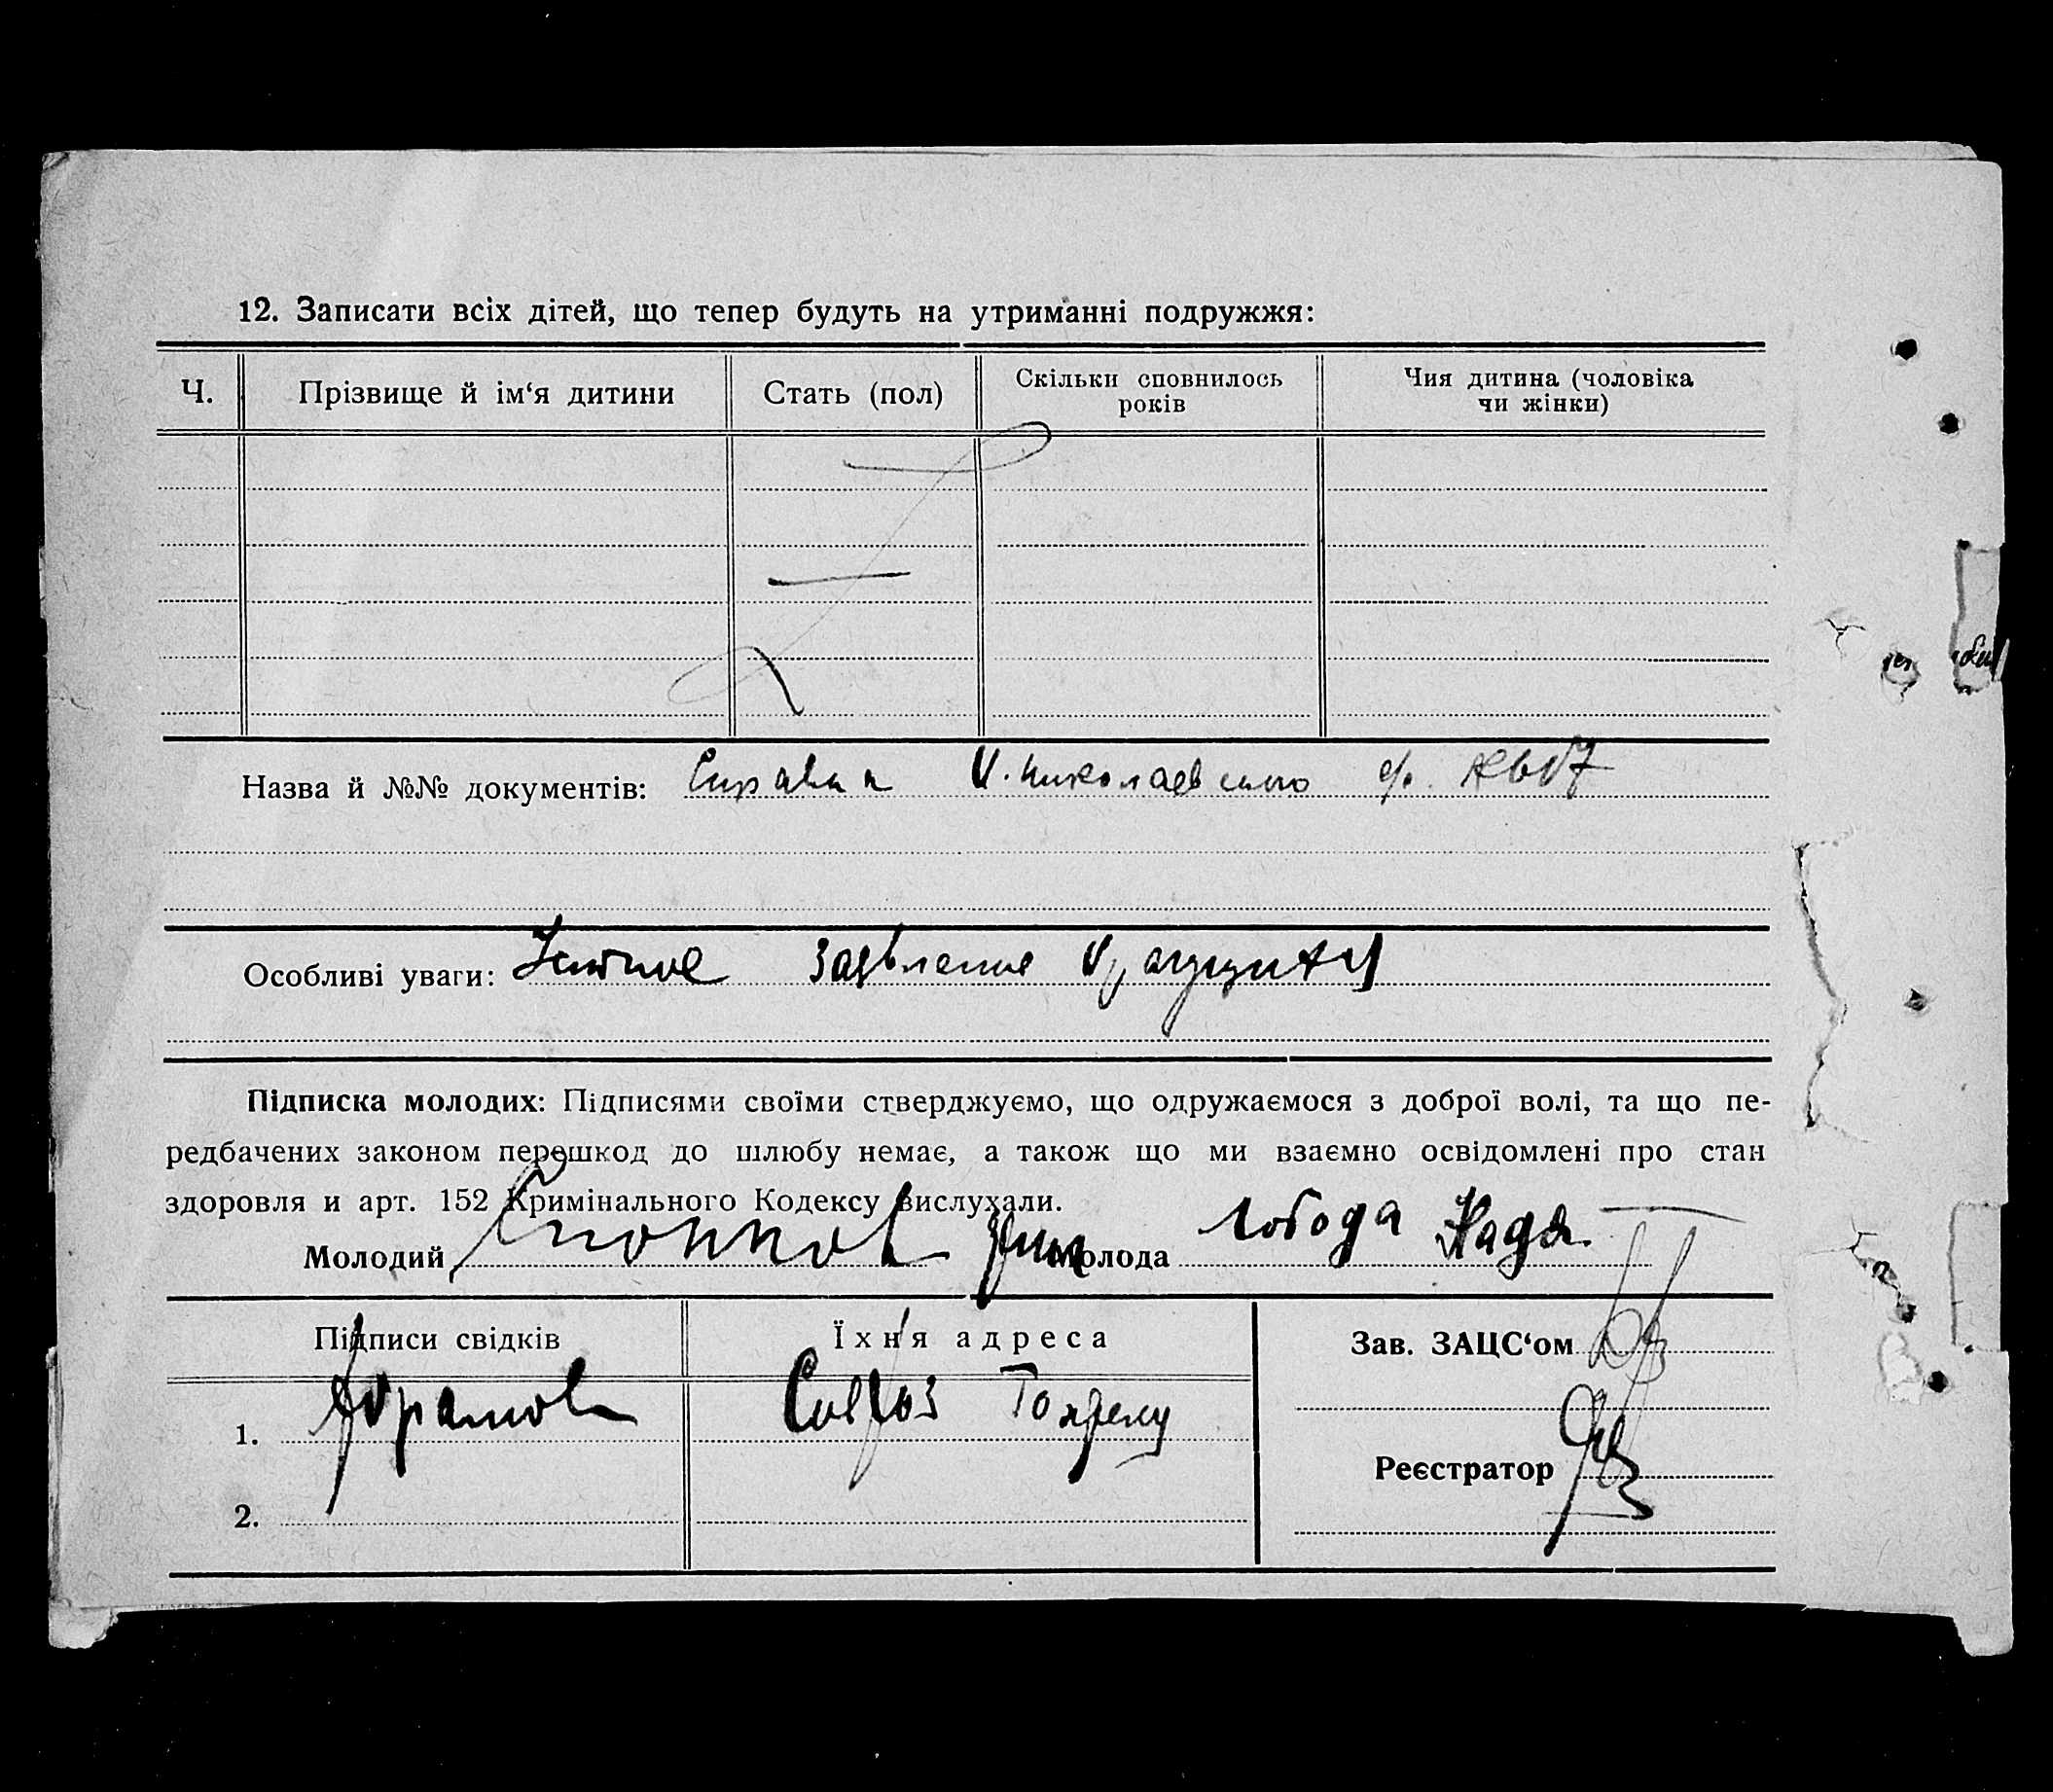 12. Записати всіх дітей, що тепер будуть на утриманні подружжя:
Ч. Прізвище й ім‘я дитини Стать (пол) Скільки сповнилось років Чия дитина (чоловіка чи жінки)
Назва й №№ документів: Справка
Особливі уваги: Устное Заявление
Підписка молодих: Підписями своїми стверджуємо, що одружаємося з доброї волі, та що пе-
редбачених законом перешкод до шлюбу немає, а також що ми взаємно освідомлені про стан
здоров‎ля и арт. 152 Кримінального Кодексу вислухали.
Молодий Молода Лобода Надя
Підписи свідків Їхня адреса Зав. ЗАЦС‘ом
1. Абрамов Совхоз
Реєстратор
2.